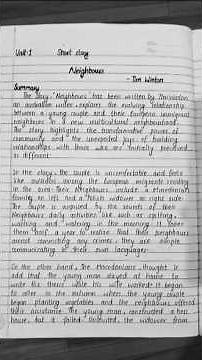 Unit-1 Short story
Neighbours
- Tim Winton
Summary
The story, "Neighbours" has been written by Tim Winton
an australian writer explores the evolving relationship
between a young couple and their European immigrant
neighbours in a new multicultural neighbourhood.
The story highlights the transformative power of
community and the unexpected joys of building
relationships with those who are initially perceived
as different.
In the story, the couple is uncomfortable and feels
like outsiders among the European migrants residing
in the area. Their neighbours include a Macedonian
family on left and a Polish widower on right side.
The couple is by the sounds of their
Neighbours daily activities like such as spitting,
walking and watering in the morning. It takes
them half a year to realise that their neighbours
arent any crimes, they are simple
communicating in their own languages.
On the other hand, the Macedonians thought is
odd that the young man stayed at home to
write his thesis while his wife worked. It began
to alter in the autumn when the young couple
began planting vegetables and the neighbours offered
their assistance. The young man constructed a hen
house, but it failed. the widower from